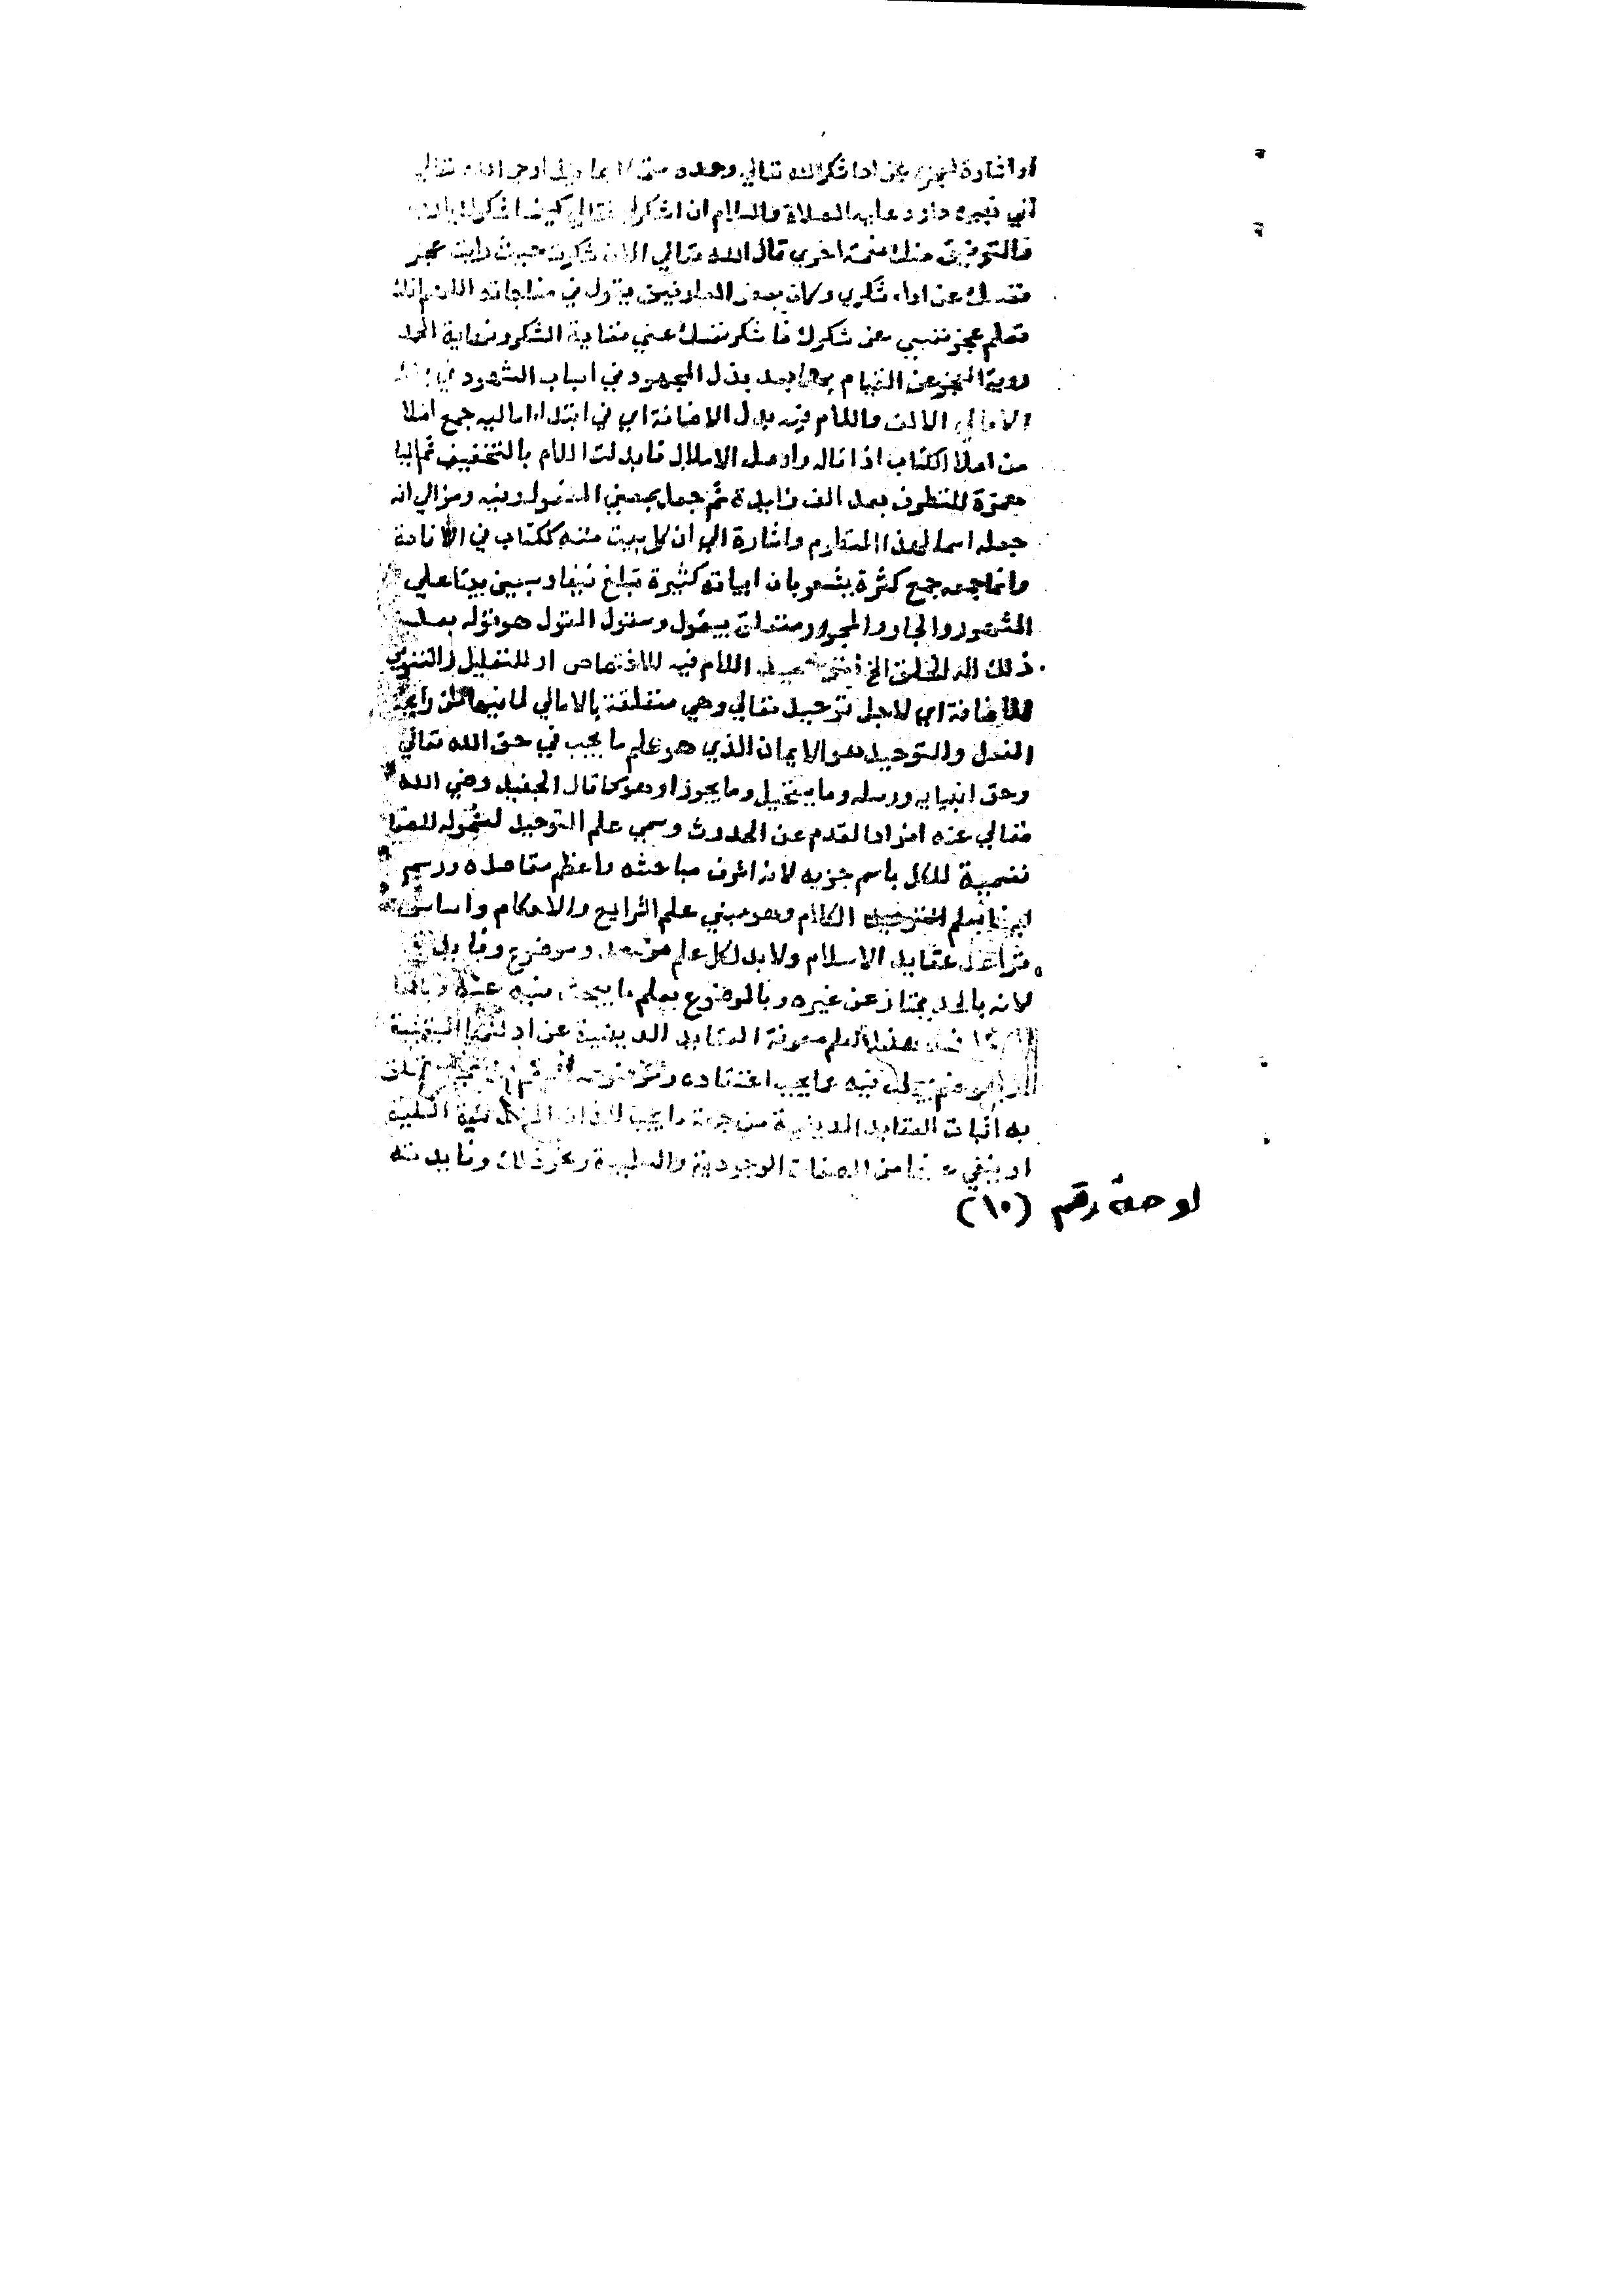 او اشارة لعجزه عن ادا شكر الله تعالي وحده اوحي الله تعالي
نبيه داود عليه الصلاة والسلام ان اشكرني فقال كيف اشكرك
فالتوفيق منك نعمة اخري قال الله تعالي الان شكرت حيث رايت عجز
نفسك عن اداء شكري وكان بعض العارفين يقول في مناجاته اللهم انك
تعلم عجز نفسي عن شكرك فاشكر نفسك عني فغاية الشكر ونهاية الحمد
روية العجز عن القيام بها بعد بذل المجهود في اسباب الشهود في
الامالي الالف واللام فيه بدل الاضافة اي في ابتداء اماليه جمع املا
من املا الكتاب اذا قاله واصله الاملال فابدلت اللام بالتخفيف ثم اليا
همزة للتطرف بعد الف زايدة ثم جعل بمعني المفعول وفيه رمز الي انه
جعله اسما لهذا المنظوم واشارة الي ان كل بيت منه ككتاب في الافادة
وانما جمعه جمع كثرة يشعر بان ابياته كثيرة تبلغ نيفا وستين بيتا علي
المشهور والجار والمجرور متعلق بيقول ومقول القول هو قوله بعد
ذلك اله الخلق الخ اللام فيه للاختصاص او للتعليل والتنوين
للاضافة اي لاجل توحيده تعالي وهي متعلقة بالامالي لما فيها من رايحة
الفعل والتوحيد هو الايمان الذي هو علم ما يجب في حق الله تعالي
وحق انبيايه ورسله وما يستحيل وما يجوز او هو كما قال الجنيد رضي الله
تعالي عنه افراد القدم عن الحدوث وسمي علم التوحيد لشموله للصفا
تسمية للكل باسم جزيه لانه اشرف مباحثه واعظم مقاصده ورسم
ايضا بعلم الكلام وهو مبني علم الشرايع والاحكام واساس
قواعد عقايد الاسلام ولا بد لكل علم من حد وموضوع وفايدة
لانه بالحد يمتاز عن غيره وبالموضوع يعلم ما يبحث فيه عنه
هذا العلم معرفة العقايد الدينية عن ادلتها اليقينية
فيه عما يجب اعتقاده
به اثبات العقايد الدينية من جهة ما يجب
او ينفي عنها من الصفات الوجودية والسلبية ونحو ذلك وفايدته
لوحة رقم (١٠)